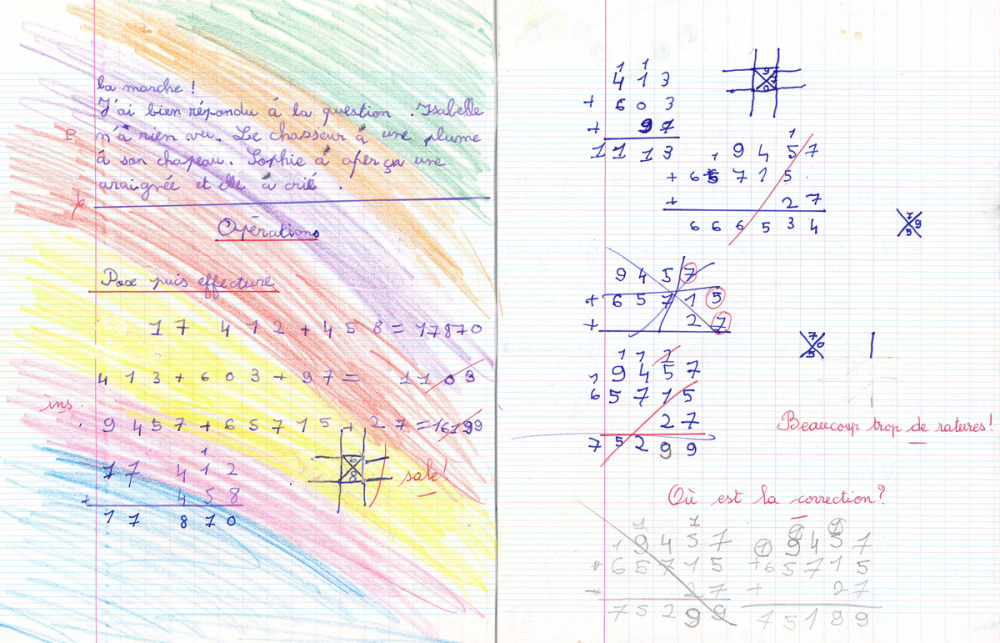 la marche !
J'ai bien répondu à la question. Isabelle
n'à rien vu. Le chasseur à une plume
à son chapeau. Sophie à aperçu une
araignée et elle à crié.
Opérations
Pose puis effectue
17 412 + 458 = 17870
413 + 603 + 97 = 1103
ins.
9457 + 65715 + 27 =
1
17 412
+ 458
17 870
sale!
1 1
413
+ 603
+ 97
1113
1 1
9457
+ 65715
+ 27
666534
9457
+ 65715
+ 27
1 1 1
1 9457
65715
27
75299
Beaucoup trop de ratures!
Où est la correction?
1 1
19457
+ 65715
+ 27
75299
1 9457
+ 65715
+ 27
75189